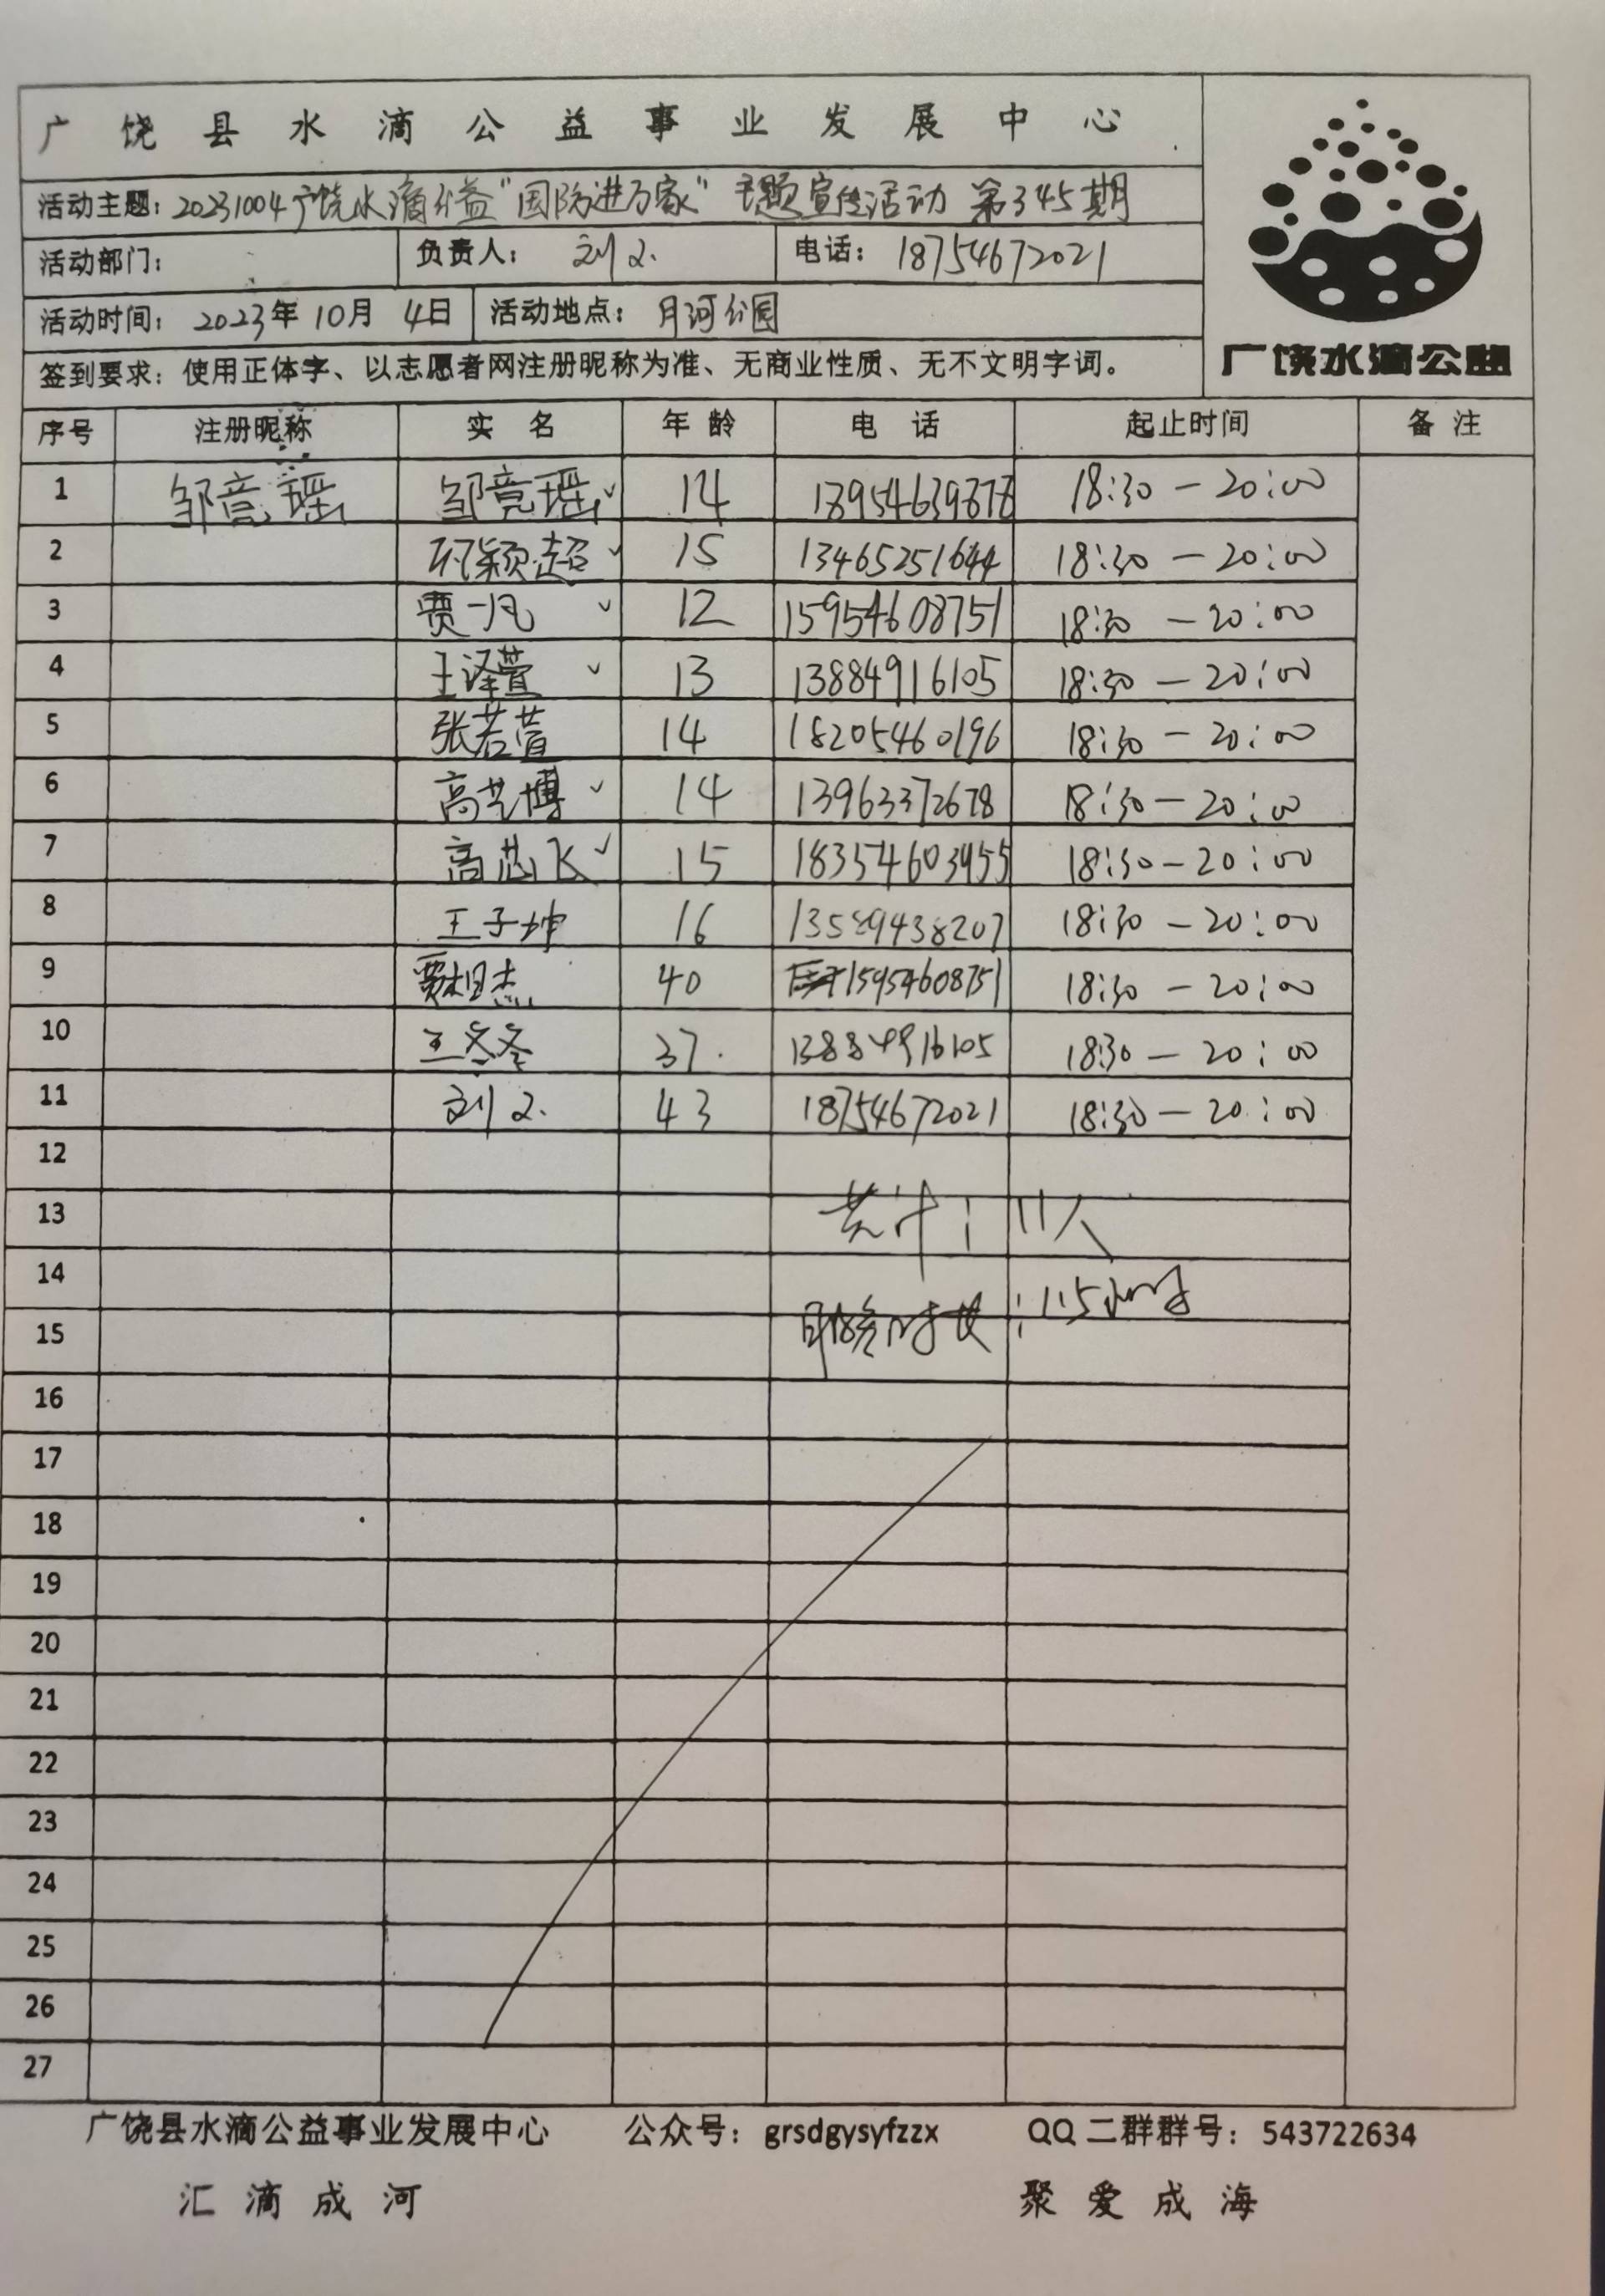 广饶县水滴公益事业发展中心
活动主题：20231004广饶水滴公益"国防进万家"主题宣传活动 第345期
活动部门： 负责人： 电话：18754672021
活动时间：2023年10月4日 活动地点：月河公园
签到要求：使用正体字、以志愿者网注册昵称为准、无商业性质、无不文明字词。
广饶水滴公益
序号 注册昵称 实名 年龄 电话 起止时间 备注
1 邹竟瑶 邹竟瑶√ 14 18:30—20:00
2 15 13465251644 18:30—20:00
3 贾一凡 √ 12 15954608751 18:30—20:00
4 王泽萱 √ 13 13884916105 18:30—20:00
5 张若萱 14 18205460196 18:30—20:00
6 高艺博 √ 14 13963372678 18:30—20:00
7 高芯飞√ 15 18354603455 18:30—20:00
8 王子坤 16 13589438207 18:30—20:00
9 贾相杰 40 15954608751 18:30—20:00
10 王冬冬 37. 13884916105 18:30—20:00
11 43 18754672021 18:30—20:00
12
13 共计：11人
14
15 服务时长：1.5小时
16
17
18
19
20
21
22
23
24
25
26
27
广饶县水滴公益事业发展中心 公众号：grsdgysyfzzx QQ二群群号：543722634
汇滴成河 聚爱成海